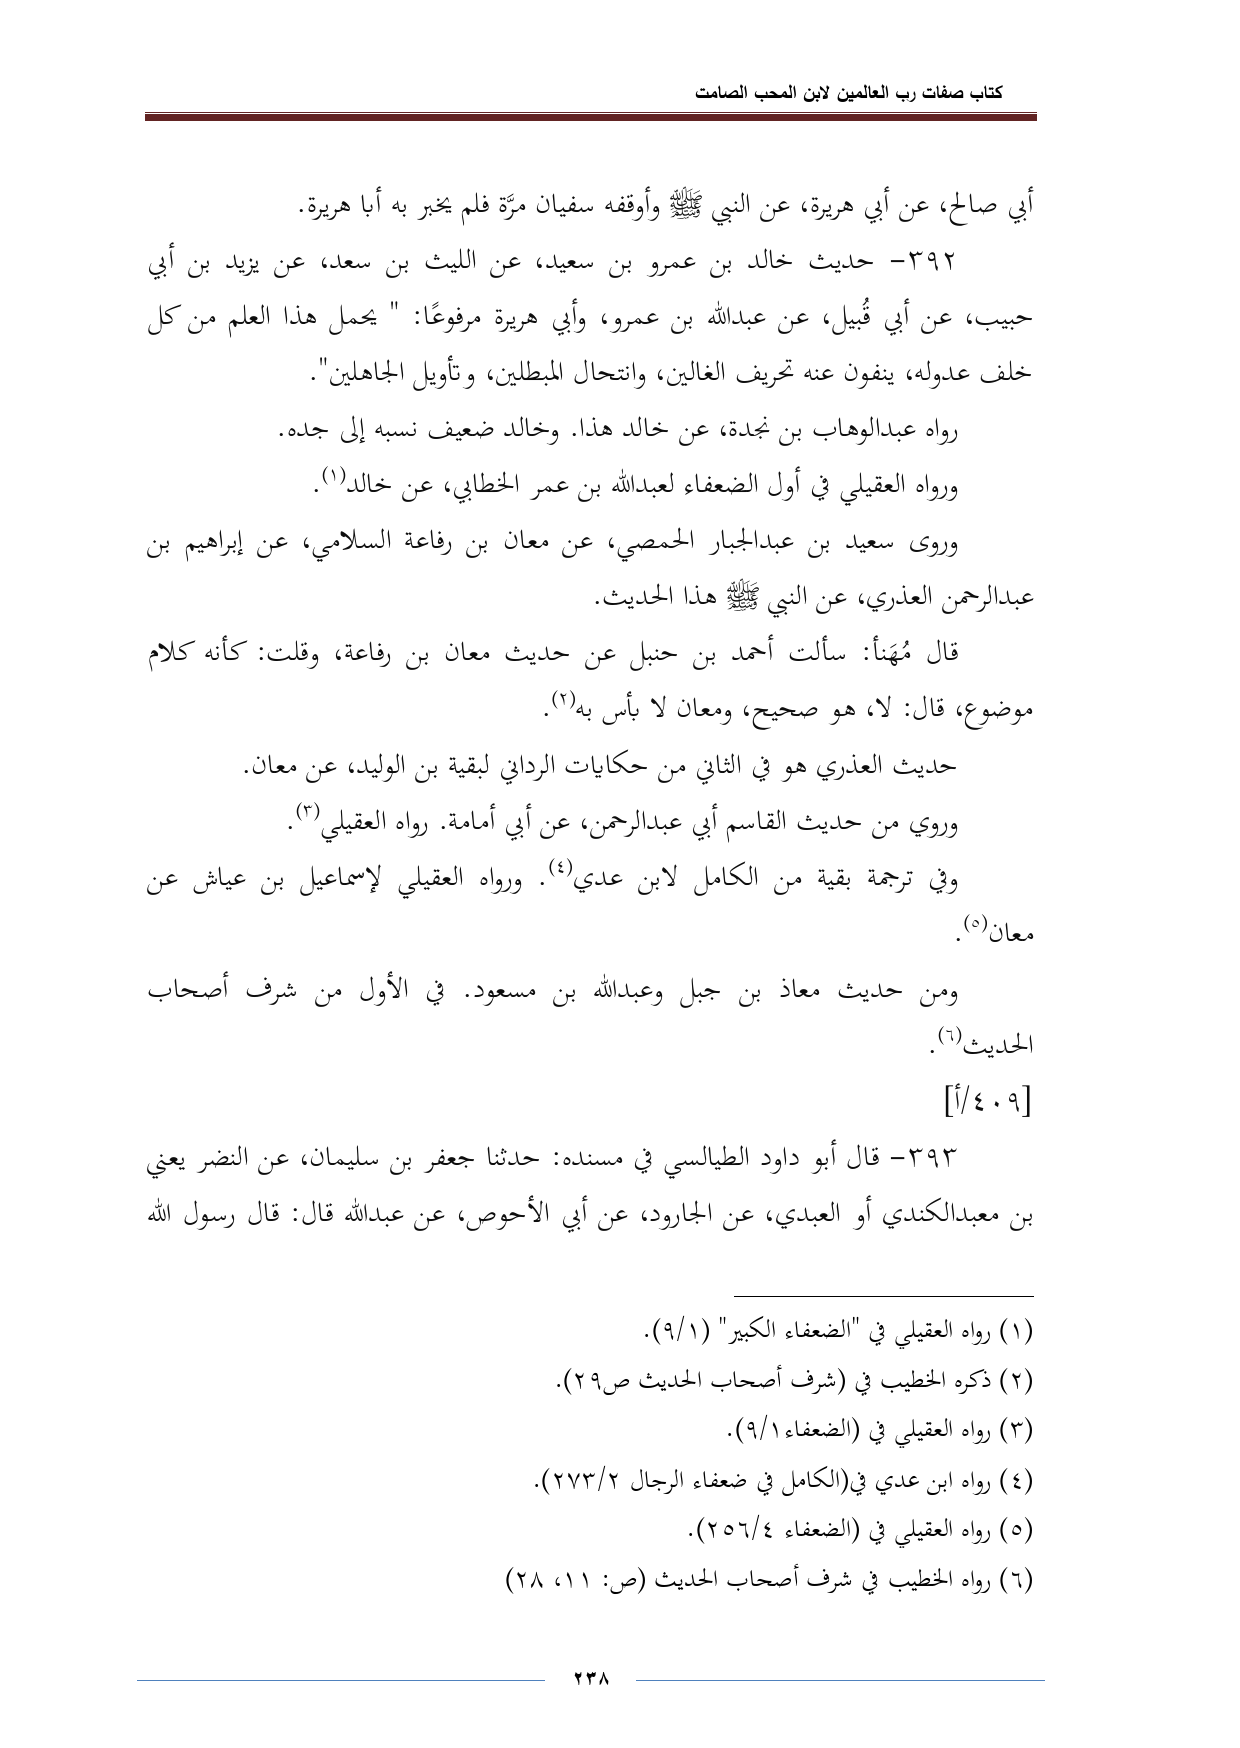 كتاب صفات رب العالمين لابن المحب الصامت
أبي صالح، عن أبي هريرة، عن النبي ﷺ وأوقفه سفيان مرَّة فلم يخبر به أبا هريرة.
٣٩٢- حديث خالد بن عمرو بن سعيد، عن الليث بن سعد، عن يزيد بن أبي
حبيب، عن أبي قُبيل، عن عبدالله بن عمرو، وأبي هريرة مرفوعًا: " يحمل هذا العلم من كل
خلف عدوله، ينفون عنه تحريف الغالين، وانتحال المبطلين، وتأويل الجاهلين".
رواه عبدالوهاب بن نجدة، عن خالد هذا. وخالد ضعيف نسبه إلى جده.
ورواه العقيلي في أول الضعفاء لعبدالله بن عمر الخطابي، عن خالد(١).
وروى سعيد بن عبدالجبار الحمصي، عن معان بن رفاعة السلامي، عن إبراهيم بن
عبدالرحمن العذري، عن النبي ﷺ هذا الحديث.
قال مُهَنأ: سألت أحمد بن حنبل عن حديث معان بن رفاعة، وقلت: كأنه كلام
موضوع، قال: لا، هو صحيح، ومعان لا بأس به(٢).
حديث العذري هو في الثاني من حكايات الرداني لبقية بن الوليد، عن معان.
وروي من حديث القاسم أبي عبدالرحمن، عن أبي أمامة. رواه العقيلي(٣).
وفي ترجمة بقية من الكامل لابن عدي(٤). ورواه العقيلي لإسماعيل بن عياش عن
معان(٥).
ومن حديث معاذ بن جبل وعبدالله بن مسعود. في الأول من شرف أصحاب
الحديث(٦).
[٤٠٩/أ]
٣٩٣- قال أبو داود الطيالسي في مسنده: حدثنا جعفر بن سليمان، عن النضر يعني
بن معبدالكندي أو العبدي، عن الجارود، عن أبي الأحوص، عن عبدالله قال: قال رسول الله
(١) رواه العقيلي في "الضعفاء الكبير" (٩/١).
(٢) ذكره الخطيب في (شرف أصحاب الحديث ص٢٩).
(٣) رواه العقيلي في (الضعفاء٩/١).
(٤) رواه ابن عدي في(الكامل في ضعفاء الرجال ٢٧٣/٢).
(٥) رواه العقيلي في (الضعفاء ٢٥٦/٤).
(٦) رواه الخطيب في شرف أصحاب الحديث (ص: ١١، ٢٨)
٢٣٨